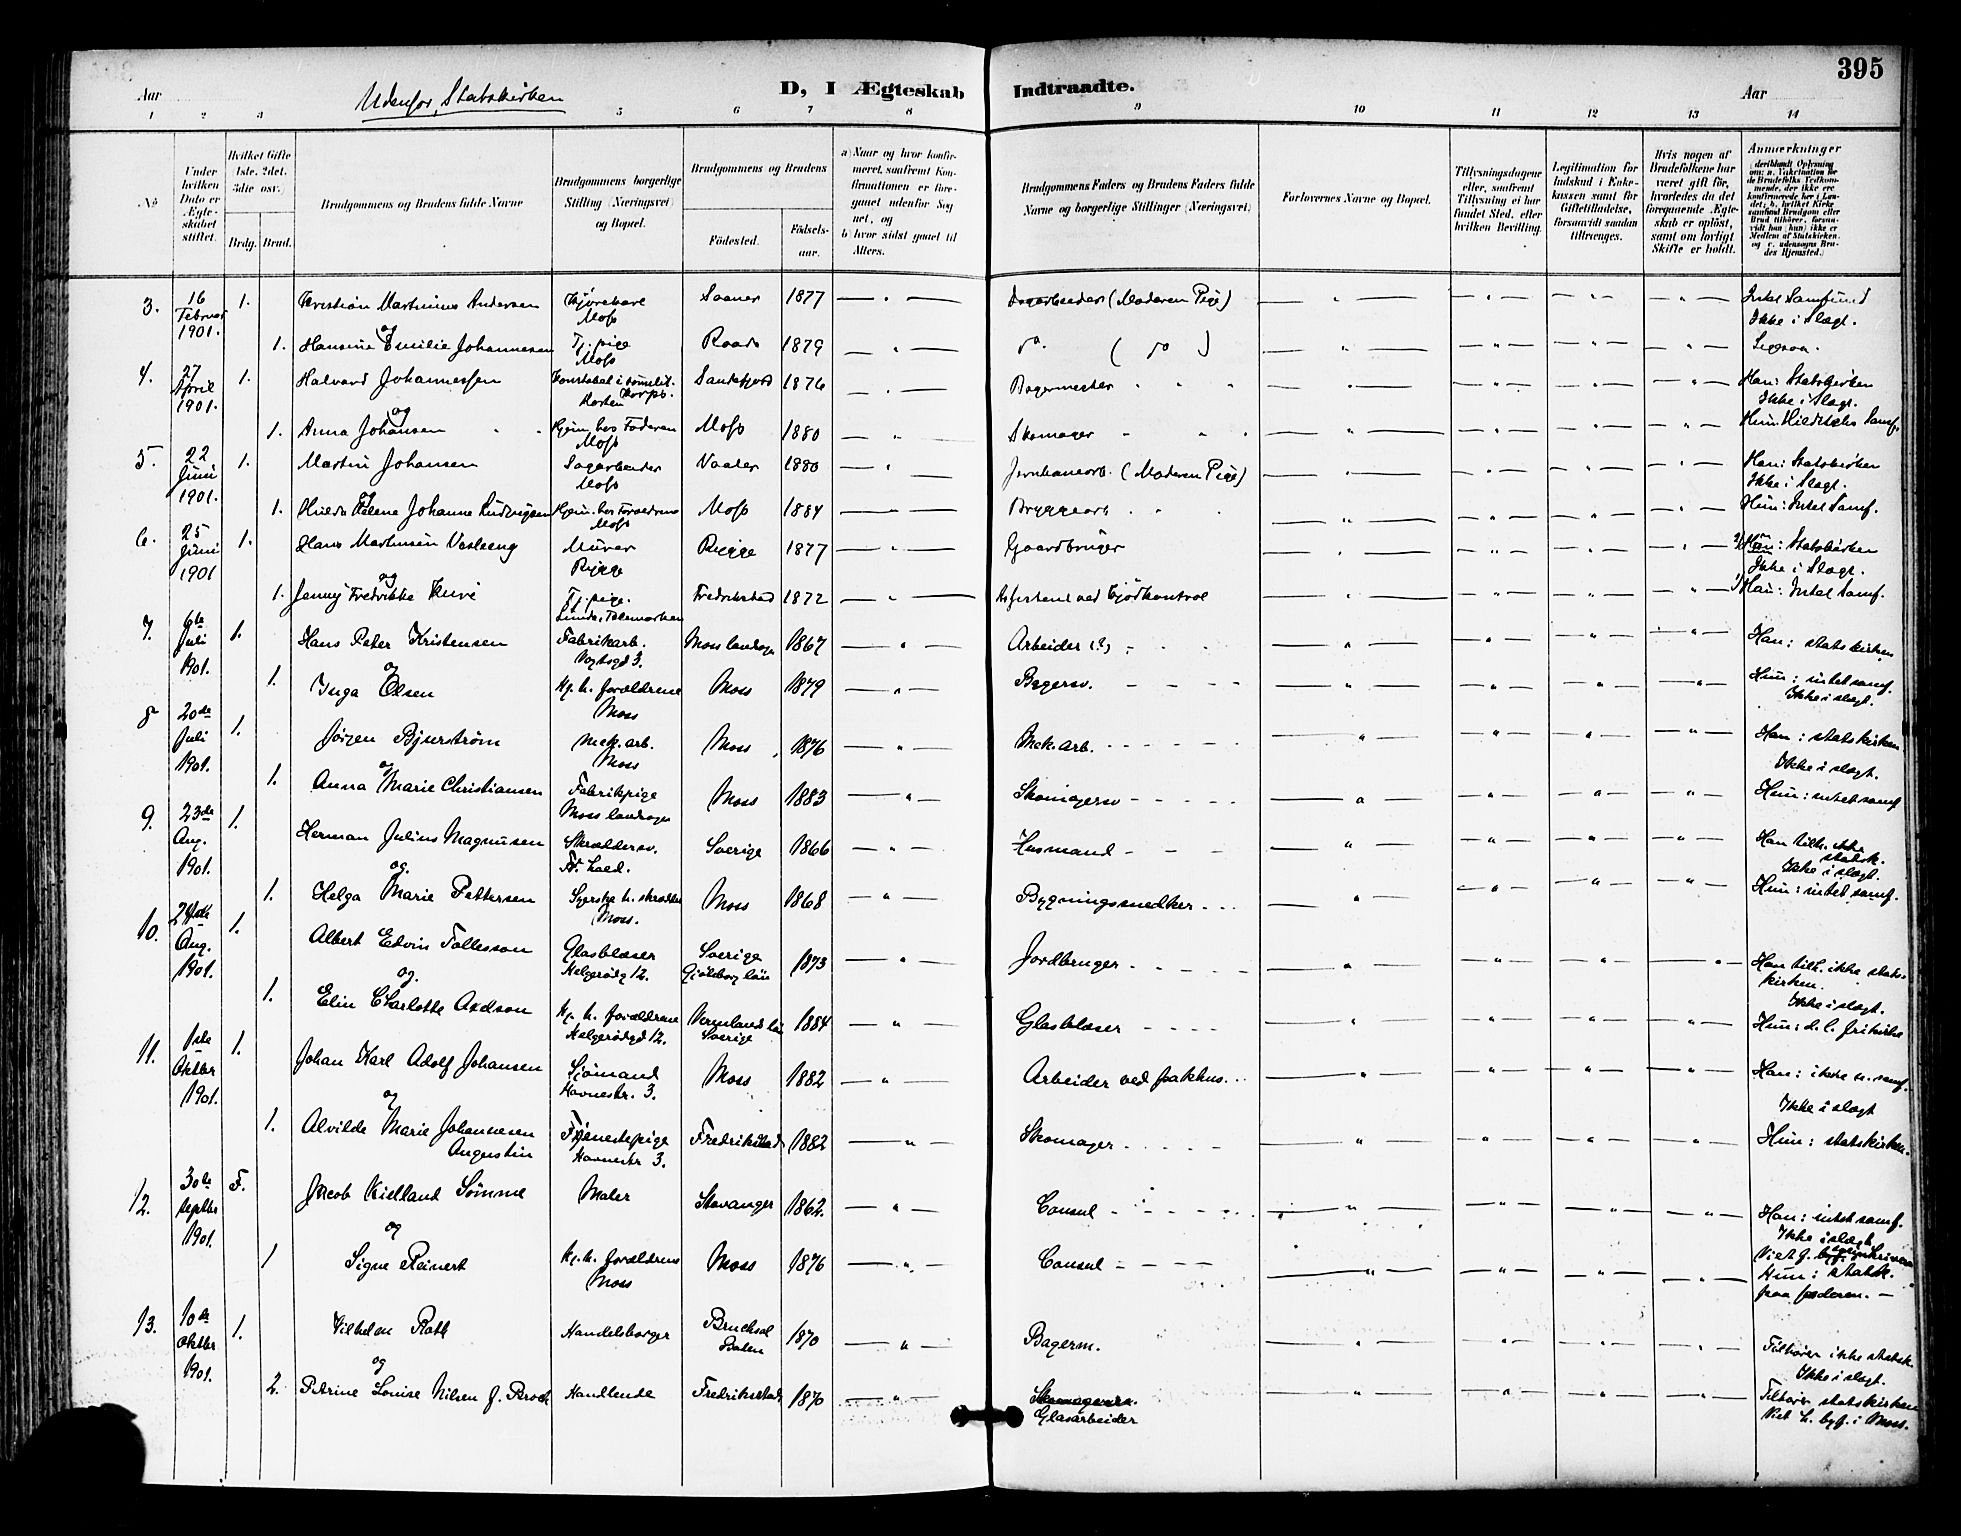 395
Aar
Udenfor Statskirken
D, I Ægteskab Indtraadte.
Aar
1 2 3 5 6 7 8 9 10 11 12 13 14
No
Under hvilken Dato er Ægteskabet stiftet.
Hvilket Gifte 1ste, 2det, 3die osv.)
Brdg. Brud.
Brudgommens og Brudens fulde Navne
Brudgommens borgerlige Stilling (Næringsvei) og Bopæl.
Brudgommens og Brudens
Fødested.
Fødsels-aar.
a) Naar og hvor konfirmeret, saafremt Konfirmationen er foregaaet udenfor Sognet, og
b) hvor sidst gaaet til Alters.
Brudgommens Faders og Brudens Faders fulde Navne og borgerlige Stillinger (Næringsvei)
Forlovernes Navne og Bopæl.
Tillysningsdagene eller, saafremt Tillysning ei har fundet Sted, efter hvilken Bevilling.
Legitimation for Indskud i Enkekassen samt for Giftetilladelse, forsaavidt saadan tiltrænges.
Hvis nogen af Brudefolkene har været gift før, hvorledes da det foregaaende Ægteskab er opløst, samt om lovligt Skifte er holdt.
Anmærkninger
3. 16 Februar 1901. 1. Kristian Martinius Andersen Kjørekare Moss Saaner 1877 Dagarbeider (Moderen Pige) Intet Samfund
Ikke i Slægt.
og
1. Hansine Emilie Johannesen Tj.pige Moss Raade 1879 do. (do)
4. 27 April 1901. 1. Halvard Johannessen Horten Sandefjord 1876 Bagermester Han: Statskirken
Ikke i Slægt.
og
1. Anna Johansen Hjem. hos Faderen Moss Moss 1880 Skomager
5. 22 Juni 1901. 1. Martin Johansen Sagarbeider Moss Vaaler 1880 (Moderen Pige) Han: Statskirken
Ikke i Slægt.
og
1. Hulda Helene Johanne Ludvigsen Hjem. hos Forældrene Moss Moss 1884 Bryggearb Hun: Intet Samf.
6. 25 Juni 1901 1. Hans Martinsen Vesleeng Murer Rygge Rygge 1877 Gaardbruger Statskirken
Ikke i Slægt.
og
1. Jenny Fredrikke Tj.pige. Fredrikstad 1872 Assistent ved Kjødkontrol Intet Samf.
7. 6te Juli 1901. 1. Hans Peter Kristensen Fabrikarb. Vogtsgd 3. Moss landsogn 1867 Arbeider (?) Han: statskirken
og
1. Inga Olsen Hj. h. forældrene Moss Moss 1879 Bagersv. Hun: intet samf.
Ikke i slægt.
8 20de Juli 1901. 1. Jørgen Bjurstrøm Mek. arb. Moss Moss 1876 Mek. Arb. Han: statskirken
Ikke i slægt.
og
1. Anna Marie Christiansen Fabrikpige Moss landsogn Moss 1883 Skomagersv Hun: intet samf
9. 23de Aug. 1901. 1. Herman Julius Magnusen Skræddersv. Sverige 1866 Husmand Han tilh. ikke statsk.
Ikke i slægt.
og.
1. Helga Marie Pettersen Syerske h. skrædder Moss. Moss 1868 Bygningssnedker Hun: intet samf.
10. 24de Aug. 1901. 1. Albert Edvin Tollesson Glasblæser Helgerødg 12. Sverige Gjøteborg län 1873 Jordbruger Han tilh. ikke stats kirken.
Ikke i slægt.
og.
1. Elin Charlotte Axelson Hj. h. forældrene Helgerødgd 12. Vermlands län Sverige 1884 Glasblæser Hun: d. l. frikirke
11. 1ste Oktbr 1901. 1. Johan Karl Adolf Johansen Sjømand Havnestr. 3. Moss 1882 Arbeider ved pakhus Han: ikke n. samf.
Ikke i slægt
og
1. Alvilde Marie Johannesen Augustin Tjenestepige Havnestr 3. Fredrikstad 1882 Skomager Hun: statskirken.
12. 30te Septbr 1901. F. Jacob Kielland Sømme Maler Stavanger 1862. Consul Han: intet samf.
Ikke i slægt
og
1 Signe Reinert Hj. h. forældrene Moss Moss 1876 Consul Hun: statsk.
paa faderen.
13. 10de Oktbr 1901. 1. Vilhelm Roth Handelsborger Bruchsal Baden 1870 Bagerm. Tilhører ikke statsk.
Ikke i slægt.
og
2. Petrine Lovise Nilsen f. Broch Handlende Fredrikstad 1870 Glasarbeider Tilhører statskirken
Viet h. byf. i Moss.